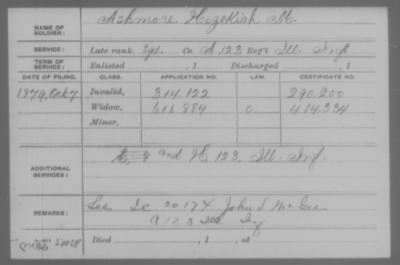 NAME OF SOLDIER: Ashmore, Hezekiah M.
SERVICE: Late rank, Sgt. Co. A, 123 Reg't Ill. Inf
TERM OF SERVICE: Enlisted , 1 Discharged , 1
DATE OF FILING. CLASS. APPLICATION NO. LAW. CERTIFICATE NO.
1879, Oct 7 Invalid, 314.122 290.200
Widow, 618.884 414.334
Minor,
ADDITIONAL SERVICES: and H 123. Ill. Inf.
REMARKS: 20174 John S McGee
Died , 1 , at